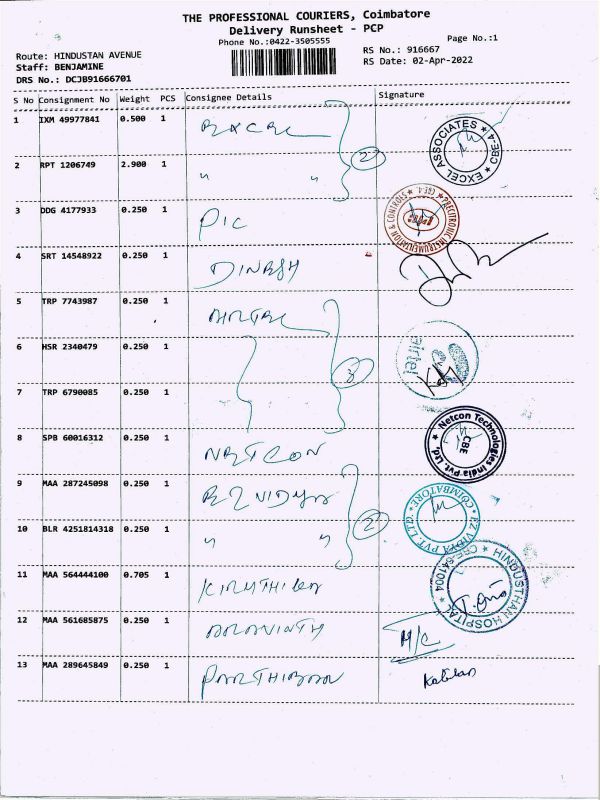 THE PROFESSIONAL COURIERS, Coimbatore
Delivery Runsheet - PCP
Phone No.:0422-3505555
Page No.:1
Route: HINDUSTAN AVENUE
RS No.: 916667
Staff: BENJAMINE
RS Date: 02-Apr-2022
DRS No.: DCJB91666701
S No Consignment No Weight PCS Consignee Details Signature
1 IXM 49977841 0.500 1 EXCEL
EXCEL ASSOCIATES * CBE-4 *
2 RPT 1206749 2.900 1 " " 2
3 DDG 4177933 0.250 1 PIC
PRECITRONIC INSTRUMENTATION & CONTROLS
4 SRT 14548922 0.250 1 DINESH
5 TRP 7743987 0.250 1 AIRTEL
6 HSR 2340479 0.250 1
airtel
3
7 TRP 6790085 0.250 1
8 SPB 60016312 0.250 1 NETCON
Netcon Technologies India Pvt. Ltd. * CBE
9 MAA 287245098 0.250 1 EZ VIDYA
EZ VIDYA PVT. LTD. * COIMBATORE *
10 BLR 4251814318 0.250 1 " " 2
11 MAA 564444100 0.705 1 KIRUTHIKA
HINDUSTHAN HOSPITAL * CBE-641004 *
12 MAA 561685875 0.250 1 ARAVINTH
H/C
13 MAA 289645849 0.250 1 PARTHIBAN